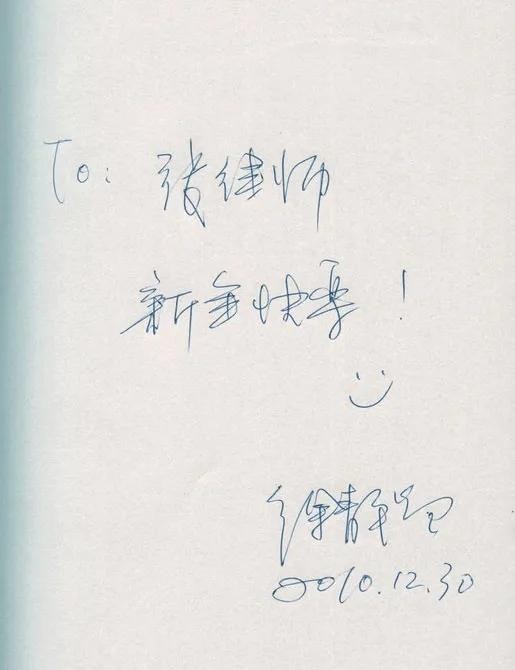 To: 张律师
新年快乐!
徐静
2010.12.30